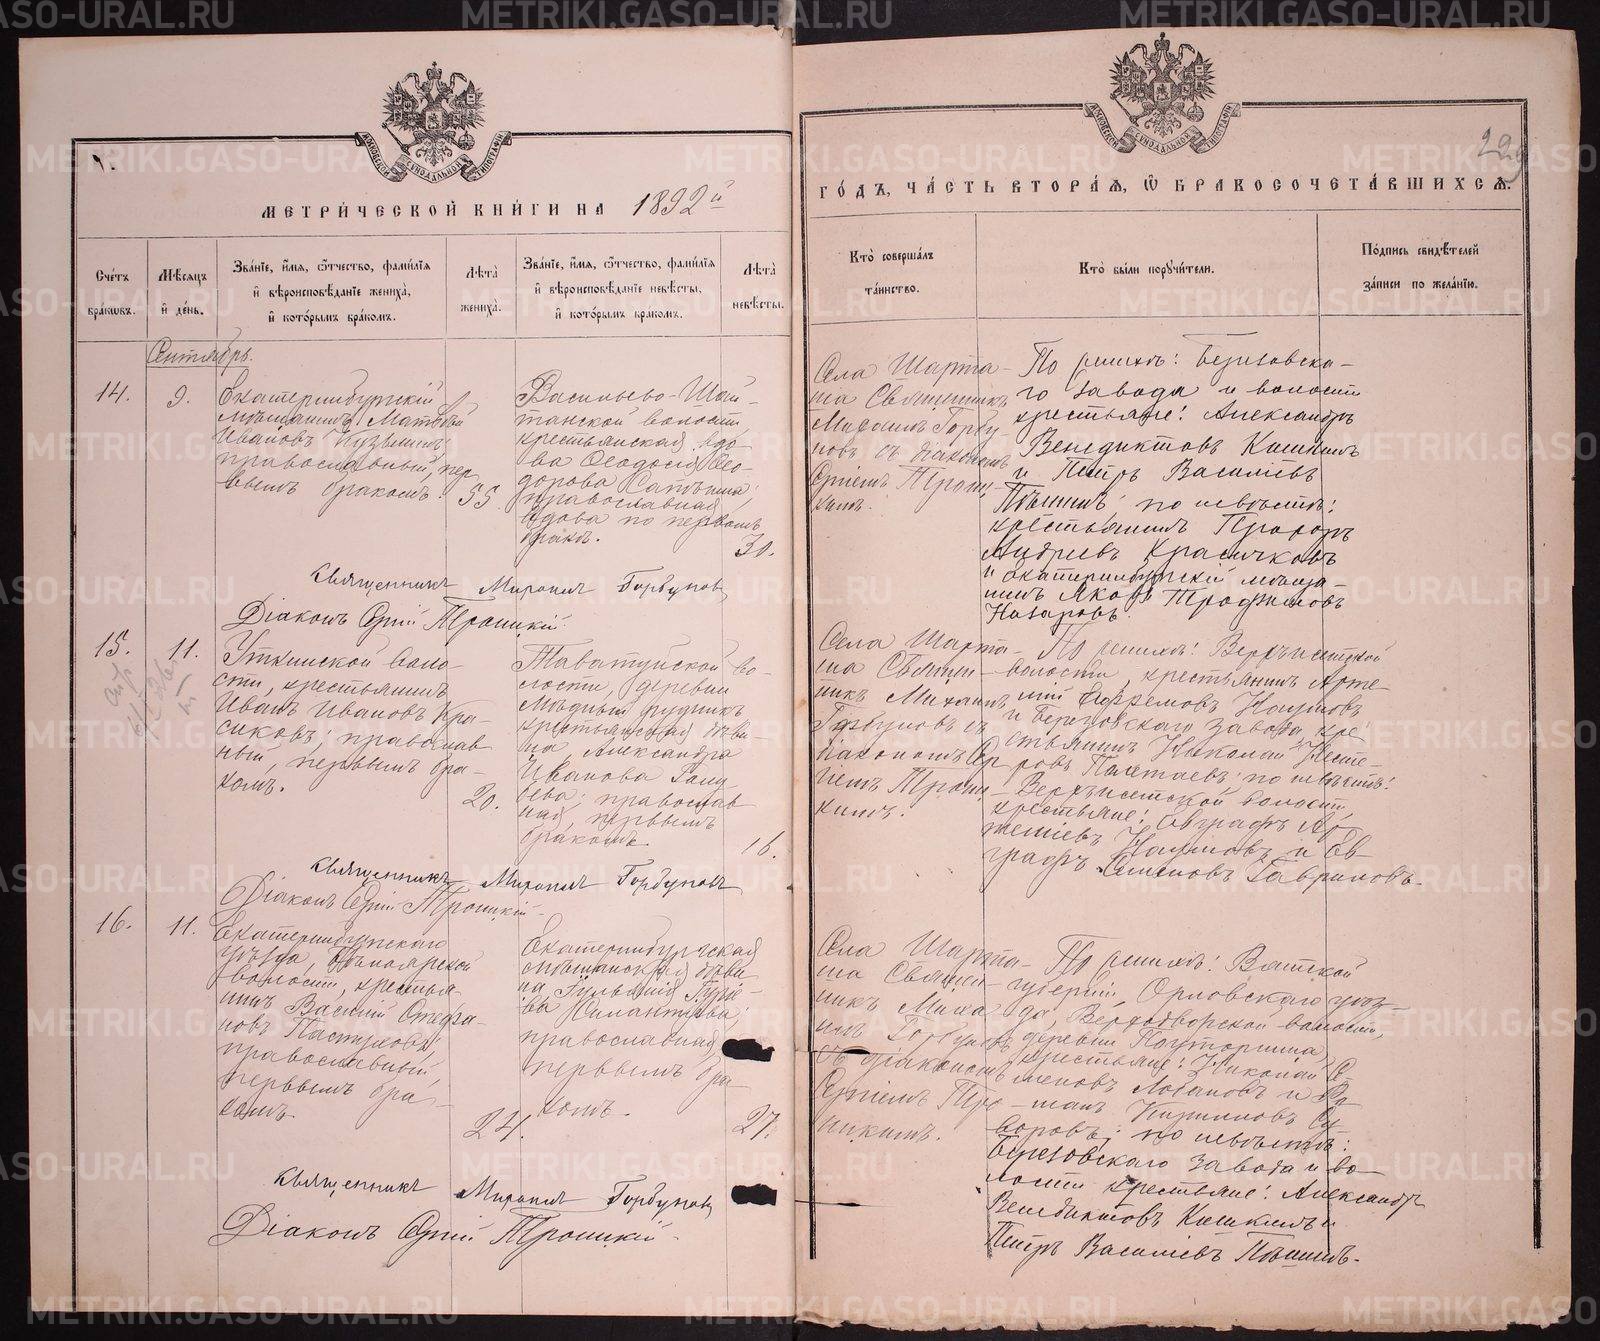 МЕТРИ́ЧЕСКОЙ КНИ́ГИ НА 1892й
ГО́ДЪ, ЧА́СТЬ ВТОРА́Я, Ѡ҆ БРАКОСОЧЕТА́ВШИХСЯ.
229
Сче́тъ бра́ковъ.
Мѣ́сяцъ и҆ де́нь.
Зва́нїе, и҆́мя, ѻ҆́тчество, фами́лїя и҆ вѣроисповѣ́данїе жениха̀, и҆ кото́рымъ бра́комъ.
Лѣ́та жениха̀.
Зва́нїе, и҆́мя, ѻ҆́тчество, фами́лїя и҆ вѣроисповѣ́данїе невѣ́сты, и҆ кото́рымъ бра́комъ.
Лѣ́та невѣ́сты.
Кто̀ соверша́лъ та́инство.
Кто̀ бы́ли поручи́тели.
По́дпись свидѣ́телей за́писи по жела́нїю.
Сентябрь.
14.
9.
Екатеринбургскій
мѣщанинъ Матвѣй
Ивановъ Кузьминъ;
православный, пер
вымъ бракомъ.
55.
Васильево-Шай-
танской волости,
крестьянская вдо-
ва Ѳеодосія Ѳео-
дорова
православная,
вдова по первомъ
бракѣ.
30.
Села Шарта-
ша Священникъ
Михаилъ Горбу
новъ съ діакономъ
Сергіемъ Троиц-
кимъ.
По женихѣ: Березовска-
го завода и волости
крестьяне: Александръ
Венедиктовъ Кошкинъ
и Петръ Василіевъ
по невѣстѣ:
крестьянинъ
Андреевъ Красичковъ
и екатеринбургскій мѣща-
нинъ Яковъ Трофимовъ
Назаровъ.
Священникъ Михаилъ Горбуновъ
Діаконъ Сергій Троицкій.
15.
11.
Уткинской воло-
сти, крестьянинъ
Иванъ Ивановъ Кра-
сиковъ; православ
ный, первымъ бра-
комъ.
20.
Таватуйской во-
лости, деревни
Мѣдный рудникъ
крестьянская дѣви-
ца, Александра
Иванова Голу
бева; православ
ная, первымъ
бракомъ.
16.
Села Шарта-
ша Священ-
никъ Михаилъ
Горбуновъ съ
діакономъ Сер
гіемъ Троиц-
кимъ.
По женихѣ: Верхъисетской
волости, крестьянинъ Арте-
мій Ефремовъ Наумовъ
и Березовскаго завода, кре-
стьянинъ Николай Несте-
ровъ Полетаевъ; по невѣстѣ:
Верхъисетской волости
крестьяне: Евграфъ Ар-
теміевъ Наумовъ и Ев-
графъ Семеновъ Гавриловъ.
Священникъ Михаилъ Горбуновъ
Діаконъ Сергій Троицкій.
16.
11.
Екатеринбургскаго
уѣзда, Бѣлоярской
волости, крестья-
нинъ Василій Стефа-
новъ Пастуховъ;
православный,
первымъ бра-
комъ.
24.
Екатеринбургская
мѣщанская дѣви-
ца Гурье-
ва Силантьева;
православная,
первымъ бра-
комъ.
27.
Села Шарта-
ша Священ-
никъ Миха
илъ Горбуновъ
съ діакономъ
Сергіемъ Тро-
ицкимъ.
По женихѣ: Вятской
губерніи, Орловскаго уѣз-
да, Верходворской волости,
деревни
крестьяне: Николай Се-
меновъ Лобановъ и Ро-
манъ Кириловъ Су-
воровъ; по невѣстѣ:
Березовскаго завода и во-
лости крестьяне: Александръ
Венедиктовъ Кошкинъ и
Петръ Василіевъ
Священникъ Михаилъ Горбуновъ
Діаконъ Сергій Троицкій.
METRIKI.GASO-URAL.RU